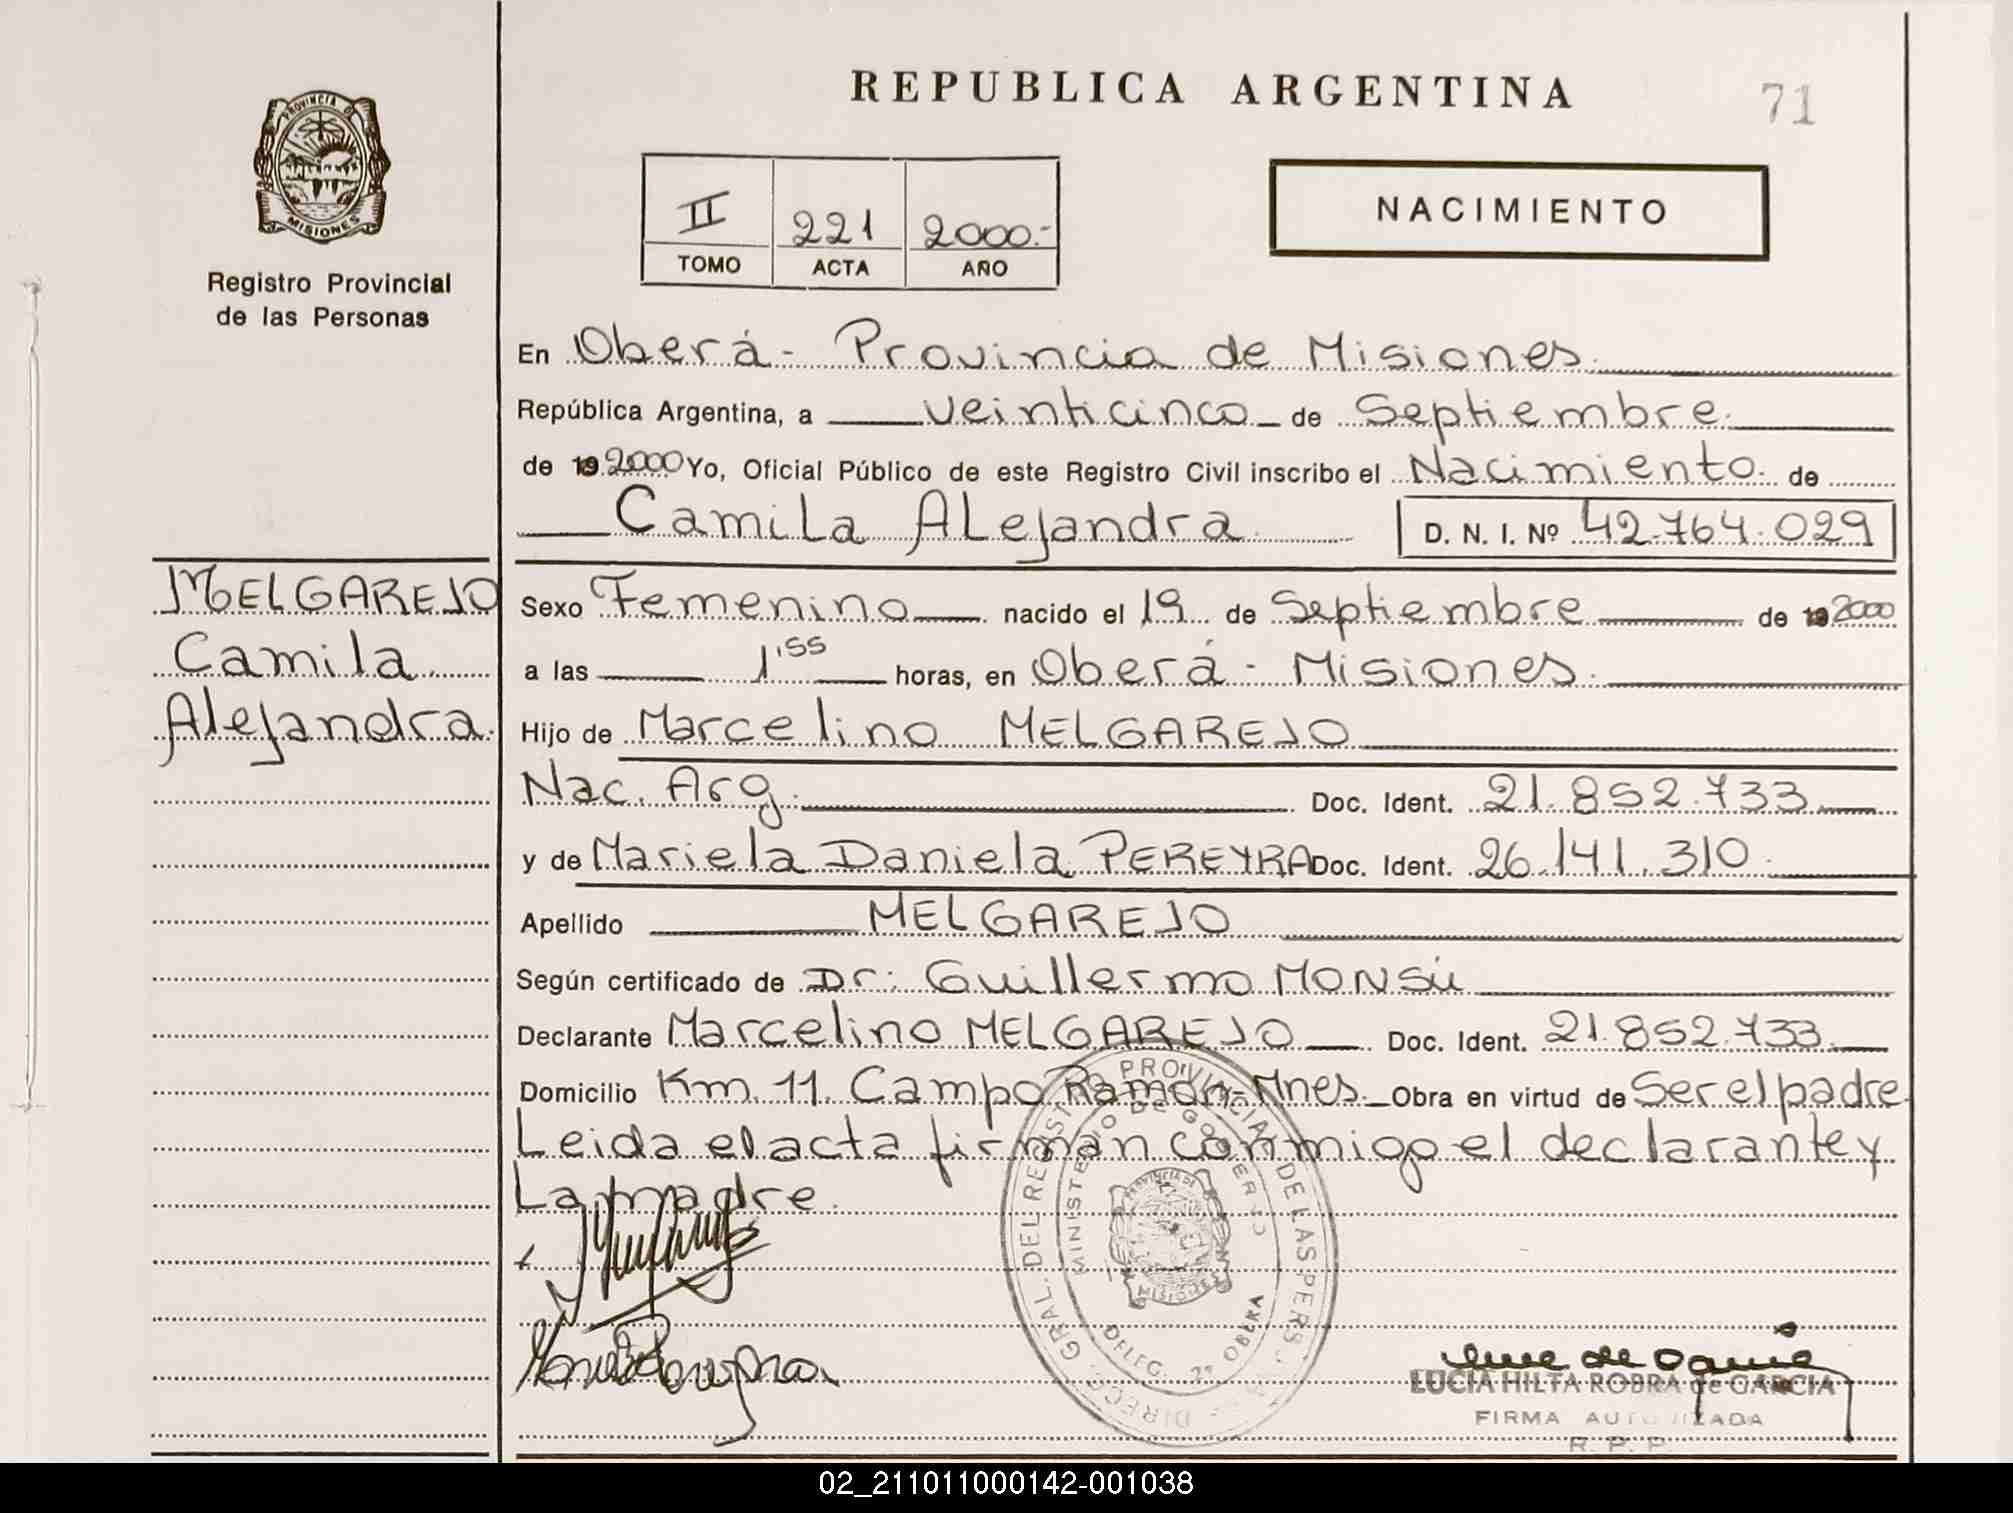 REPUBLICA ARGENTINA
71
PROVINCIA DE
MISIONES
Registro Provincial
de las Personas
II 221 2000.-
TOMO ACTA AÑO
NACIMIENTO
En Oberá - Provincia de Misiones.
República Argentina, a veinticinco de Septiembre.
de 19 2000 Yo, Oficial Público de este Registro Civil inscribo el Nacimiento. de
Camila Alejandra D. N. I. Nº 42.764.029
MELGAREJO
Camila
Alejandra.
Sexo Femenino nacido el 19 de Septiembre de 19 2000
a las 1'55 horas, en Oberá - Misiones.
Hijo de Marcelino MELGAREJO
Nac. Arg. Doc. Ident. 21.852.733
y de Mariela Daniela PEREYRA Doc. Ident. 26.141.310.
Apellido MELGAREJO
Según certificado de Dr: Guillermo MONSÚ
Declarante Marcelino MELGAREJO Doc. Ident. 21.852.733.
Domicilio Km. 11. Campo Ramón - Mnes. Obra en virtud de Ser el padre
Leida el acta firman conmigo el declarante y
La madre.
DIRECC. GRAL. DEL REGISTRO PROVINCIAL DE LAS PERS
MINISTERIO DE GOBIERNO
PROVINCIA DE
MISIONES
DELEG. 2ª OBERA
LUCIA HILTA ROBRA de GARCIA
FIRMA AUTORIZADA
R. P. P.
02_211011000142-001038